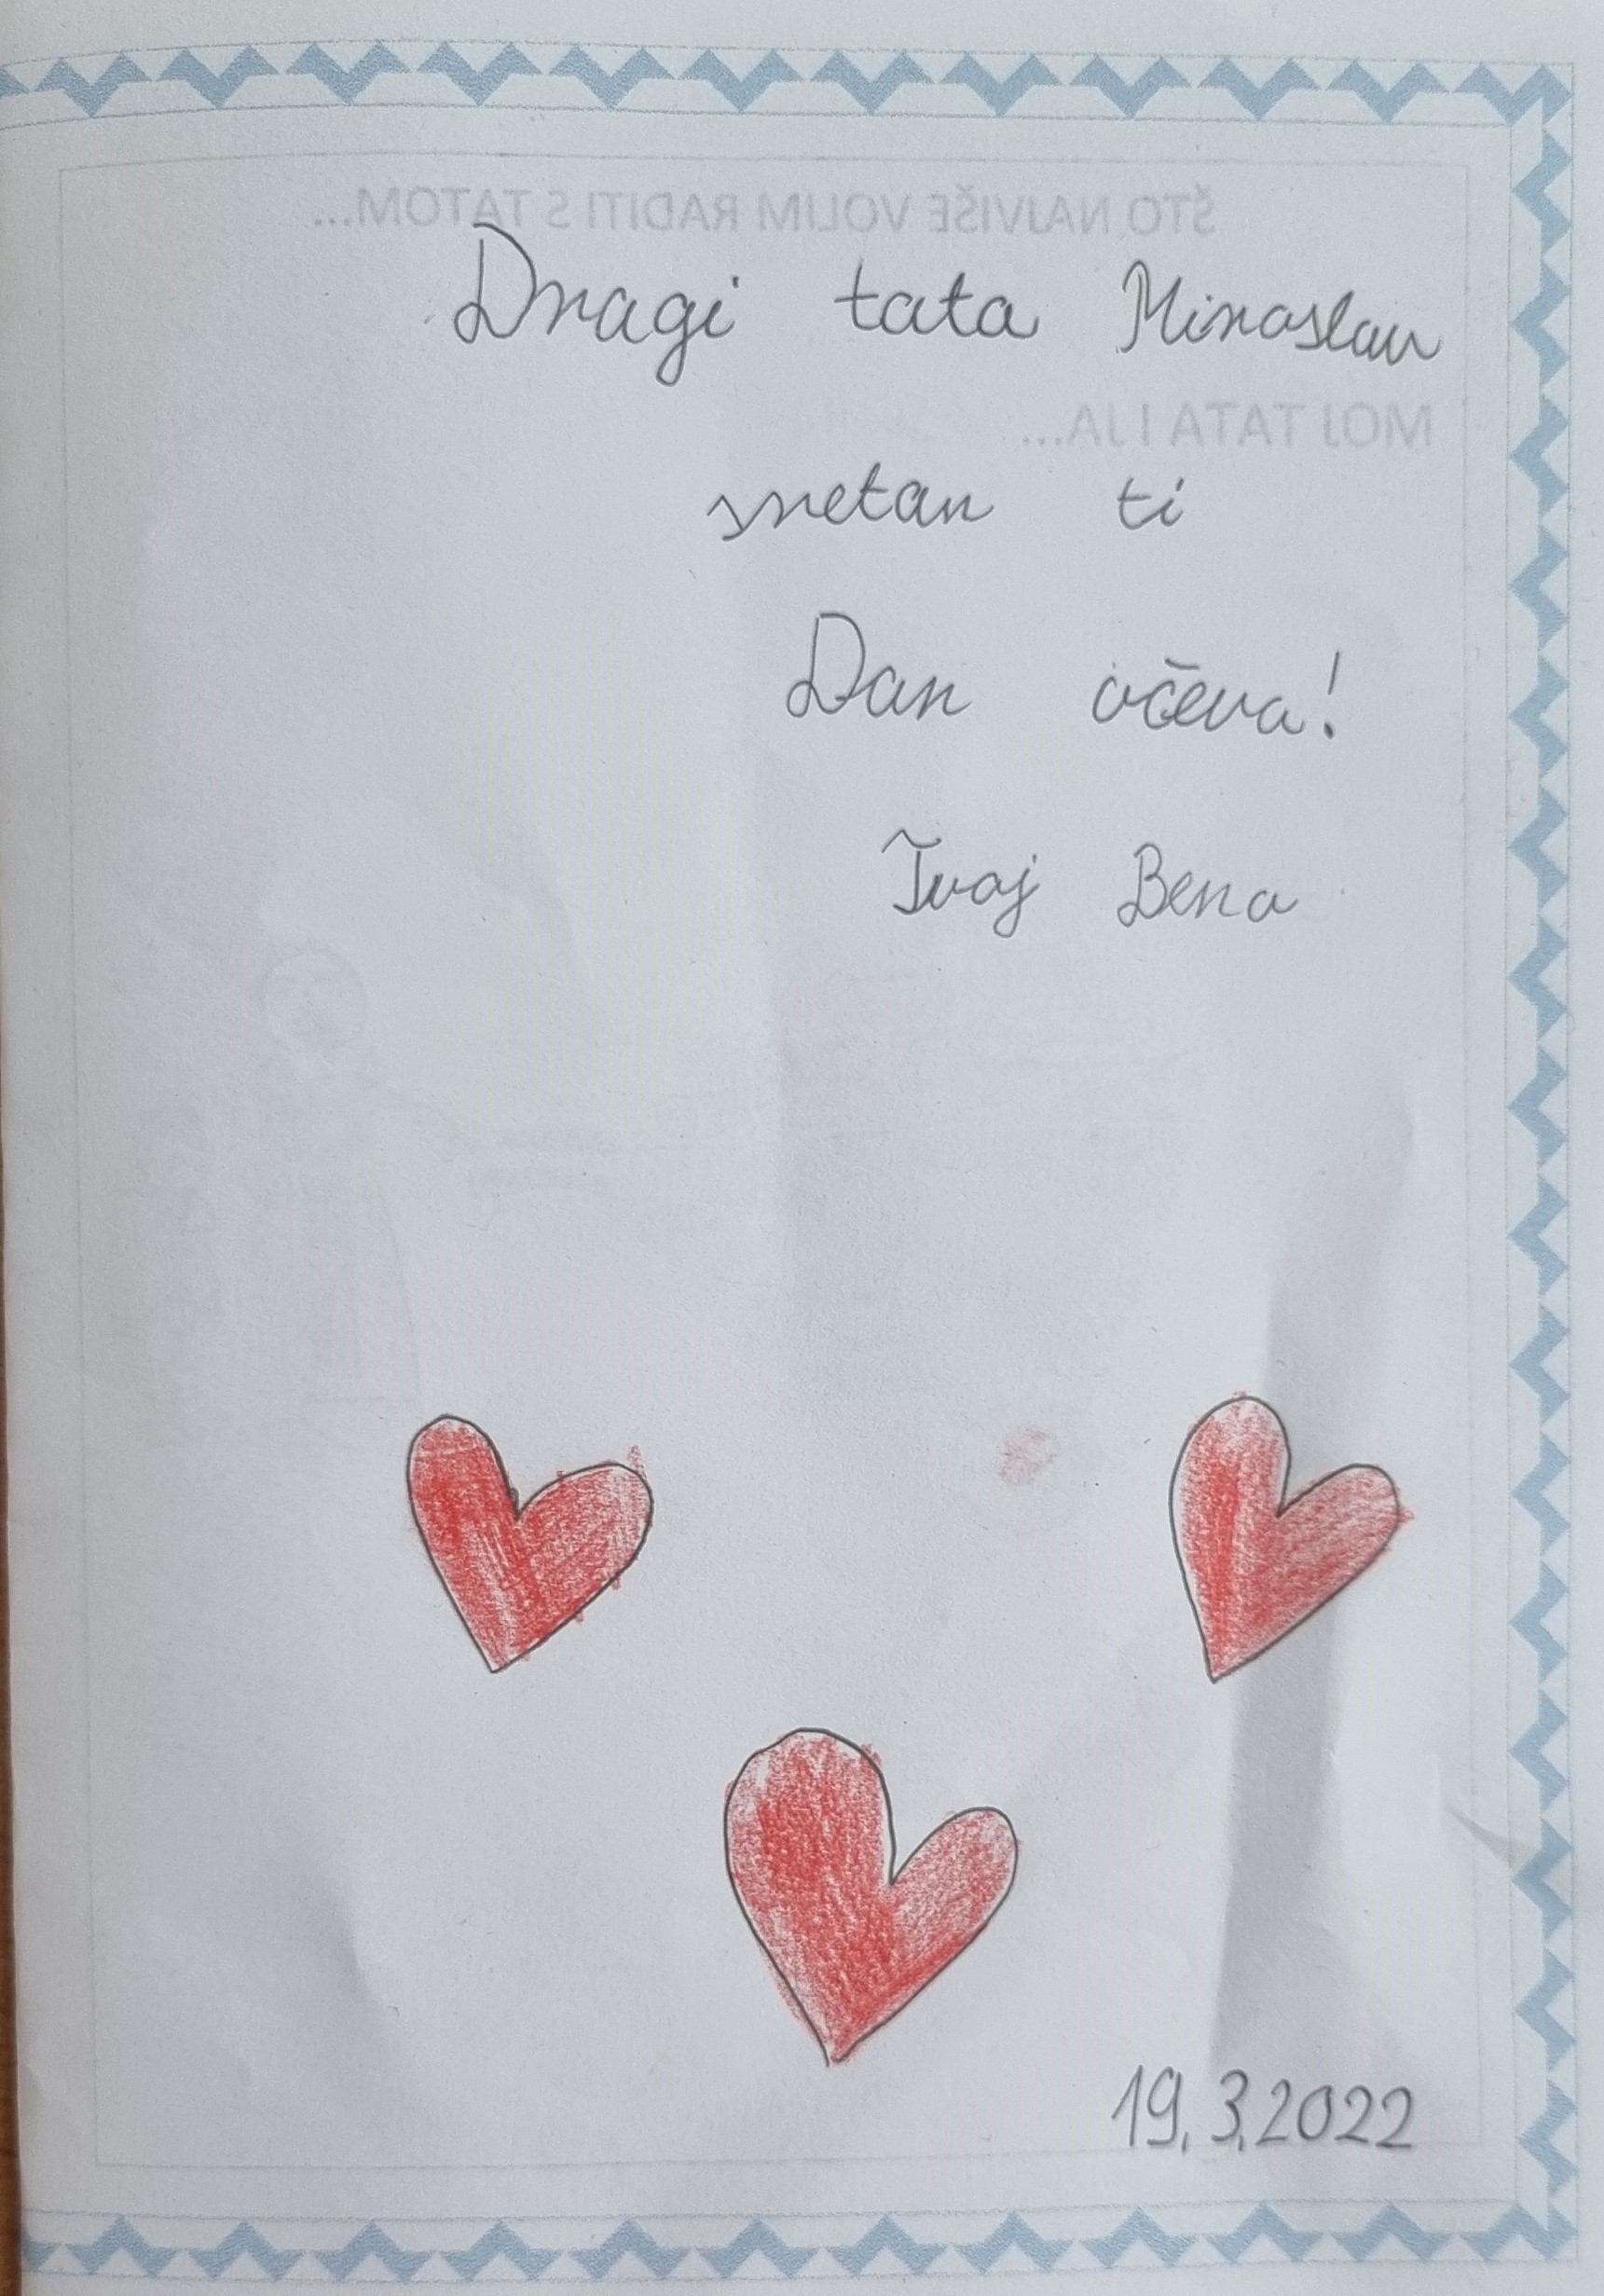 ŠTO NAJVIŠE VOLIM RADITI S TATOM...
Dragi tata Miroslav
MOJ TATA I JA...
sretan ti
Dan očeva!
Tvoj Beno
19.3.2022